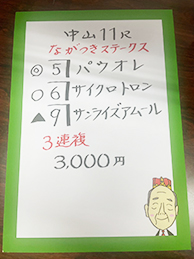 中山11R
ながつきステークス
◎ 5 パウオレ
○ 6 サイクロトロン
▲ 9 サンライズアムール
3連複
3,000円